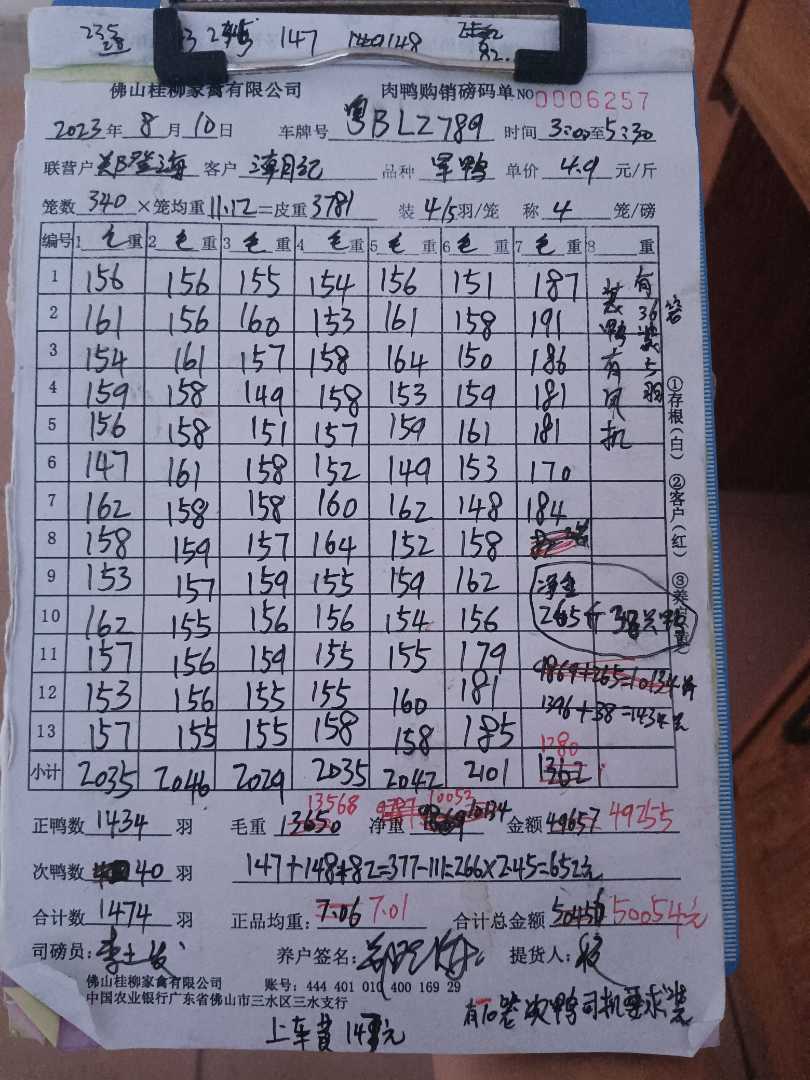 235 23 245 147 148
28 82
佛山桂柳家禽有限公司 肉鸭购销磅码单 NO 0006257
2023年 8月 10日 车牌号 粤BLZ789 时间 3:00至5:30
联营户 客户 品种 单价 4.9 元/斤
笼数 340 ×笼均重 11.12 =皮重 3781 装 4/5 羽/笼 称 4 笼/磅
编号 1 毛 重 2 毛 重 3 毛 重 4 毛 重 5 毛 重 6 毛 重 7 毛 重 8 重
1 156 156 155 154 156 151 187
2 161 156 160 153 161 158 191
3 154 161 157 158 164 150 186
4 159 158 149 158 153 159 181
5 156 158 151 157 159 161 181
6 147 161 158 152 149 153 170
7 162 158 158 160 162 148 184
8 158 159 157 164 152 158
9 153 157 159 155 159 162 净重
10 162 155 156 156 154 156 265斤 38只鸭
11 157 156 159 155 155 179 9869+265=10134斤
12 153 156 155 155 160 181 1396+38=1434只
13 157 155 155 158 158 185
1280
小计 2035 2046 2029 2035 2042 2101
有36笼装5羽
装鸭有风机
①存根(白) ②客户(红)
正鸭数 1434 羽 毛重 13650 13568 净重 9869 10134 10052 金额 49657 49255
次鸭数 40 羽 147+148+82=377-111=266×2.45=652元
合计数 1474 羽 正品均重: 7.06 7.01 合计总金额 50450 50054元
司磅员: 养户签名: 提货人:
佛山桂柳家禽有限公司 账号: 444 401 010 400 169 29
中国农业银行广东省佛山市三水区三水支行
有10笼次鸭司机要求装
上车费 元